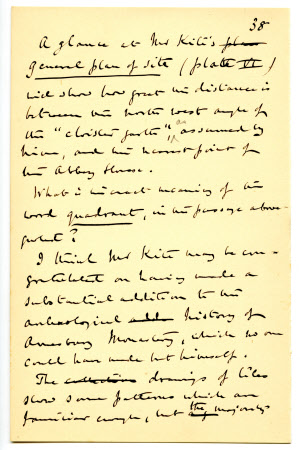 38
A glance at Mr Kite's plan
general plan of site (plate VI)
will show how great the distance is
between the north west angle of
the "cloister garth", as assumed by
him, and the nearest point of
the Abbey House.
What is the exact meaning of the
word quadrant, in the passage above-
quoted?
I think Mr Kite may be con-
gratulated on having made a
substantial addition to the
archaeological addn history of
Amesbury Monastery, which no one
could have made but himself.
The collection drawings of tiles
show some patterns which are
familiar enough, but the majority